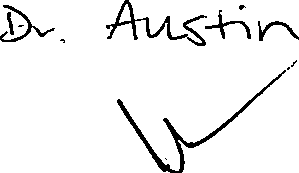 Dr. Austin